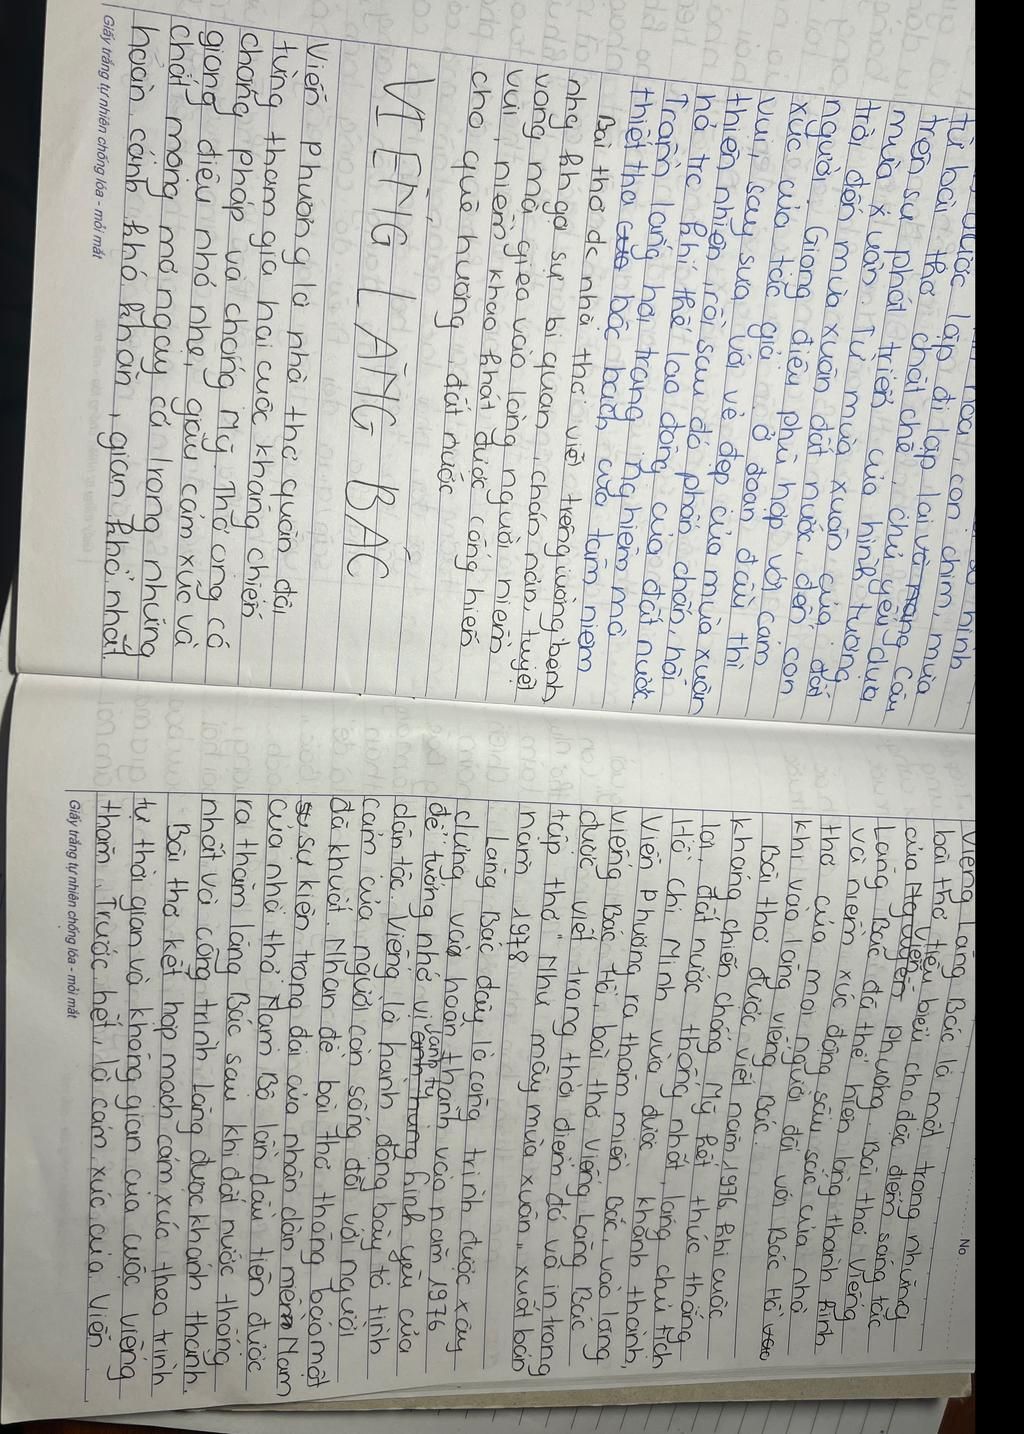 từ bài thơ chặt chẽ, chủ yếu dựa
trên sự phát triển của hình tượng
mùa xuân. Từ mùa xuân của đất
trời đến mùa xuân đất nước, đến con
người. Giọng điệu phù hợp với cảm
xúc của tác giả: ở đoạn đầu thì
vui, say sưa với vẻ đẹp của mùa xuân
thiên nhiên, rồi sau đó phấn chấn, hối
hả trc khí thế lao động của đất nước
Trầm lắng hơi trang nghiêm mà
thiết tha bộc bạch của tâm niệm
Bài thơ dc nhà thơ viết trên giường bệnh
nhg kh gợi sự bi quan, chán nản, tuyệt
vọng mà gieo vào lòng người niềm
vui, niềm khao khát được cống hiến
cho quê hương, đất nước
VIẾNG LĂNG BÁC
Viễn Phương là nhà thơ quân đội
từng tham gia hai cuộc kháng chiến
chống pháp và chống Mỹ. Thơ ông có
giọng điệu nhỏ nhẹ, giàu cảm xúc và
chất mộng mơ ngay cả trong những
hoàn cảnh khó khăn, gian khổ nhất.
Giấy trắng tự nhiên chống lóa - mỏi mắt
No
Viếng Lăng Bác là một trong những
bài thơ tiêu biểu cho đặc điểm sáng tác
của Viễn Phương. Bài thơ Viếng
Lăng Bác đã thể hiện lòng thành kính
và niềm xúc động sâu sắc của nhà
thơ của mọi người đối với Bác Hồ
khi vào lăng viếng Bác.
Bài thơ được viết năm 1976 khi cuộc
kháng chiến chống Mỹ kết thúc thắng
lợi, đất nước thống nhất, lăng chủ tịch
Hồ Chí Minh vừa được khánh thành,
Viễn Phương ra thăm miền Bắc, vào lăng
viếng Bác Hồ, bài thơ viếng Lăng Bác
được viết trong thời điểm đó và in trong
tập thơ "Như mây mùa xuân", xuất bản
năm 1978
Lăng Bác đây là công trình được xây
dựng và hoàn thành vào năm 1976
để tưởng nhớ vị lãnh tụ kính yêu của
dân tộc. Viếng là hành động bày tỏ tình
cảm của người còn sống đối với người
đã khuất. Nhan đề bài thơ thông báo một
sự kiện trọng đại của nhân dân miền Nam
của nhà thơ Nam Bộ lần đầu tiên được
ra thăm lăng Bác sau khi đất nước thống
nhất và công trình Lăng được khánh thành.
Bài thơ kết hợp mạch cảm xúc theo trình
tự thời gian và không gian của cuộc viếng
thăm. Trước hết, là cảm xúc của Viễn
Giấy trắng tự nhiên chống lóa - mỏi mắt